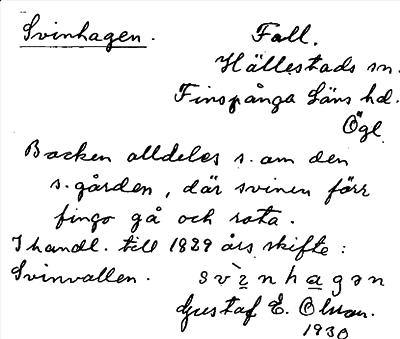 Svinhagen. Fall.
Hällestads sn.
Finspånga Läns hd.
Ögl.
Backen alldeles s. om den
s. gården, där svinen förr
fingo gå och rota.
I handl. till 1829 års skifte:
Svinvallen. svìnhagən
Gustaf E. Olsson.
1930